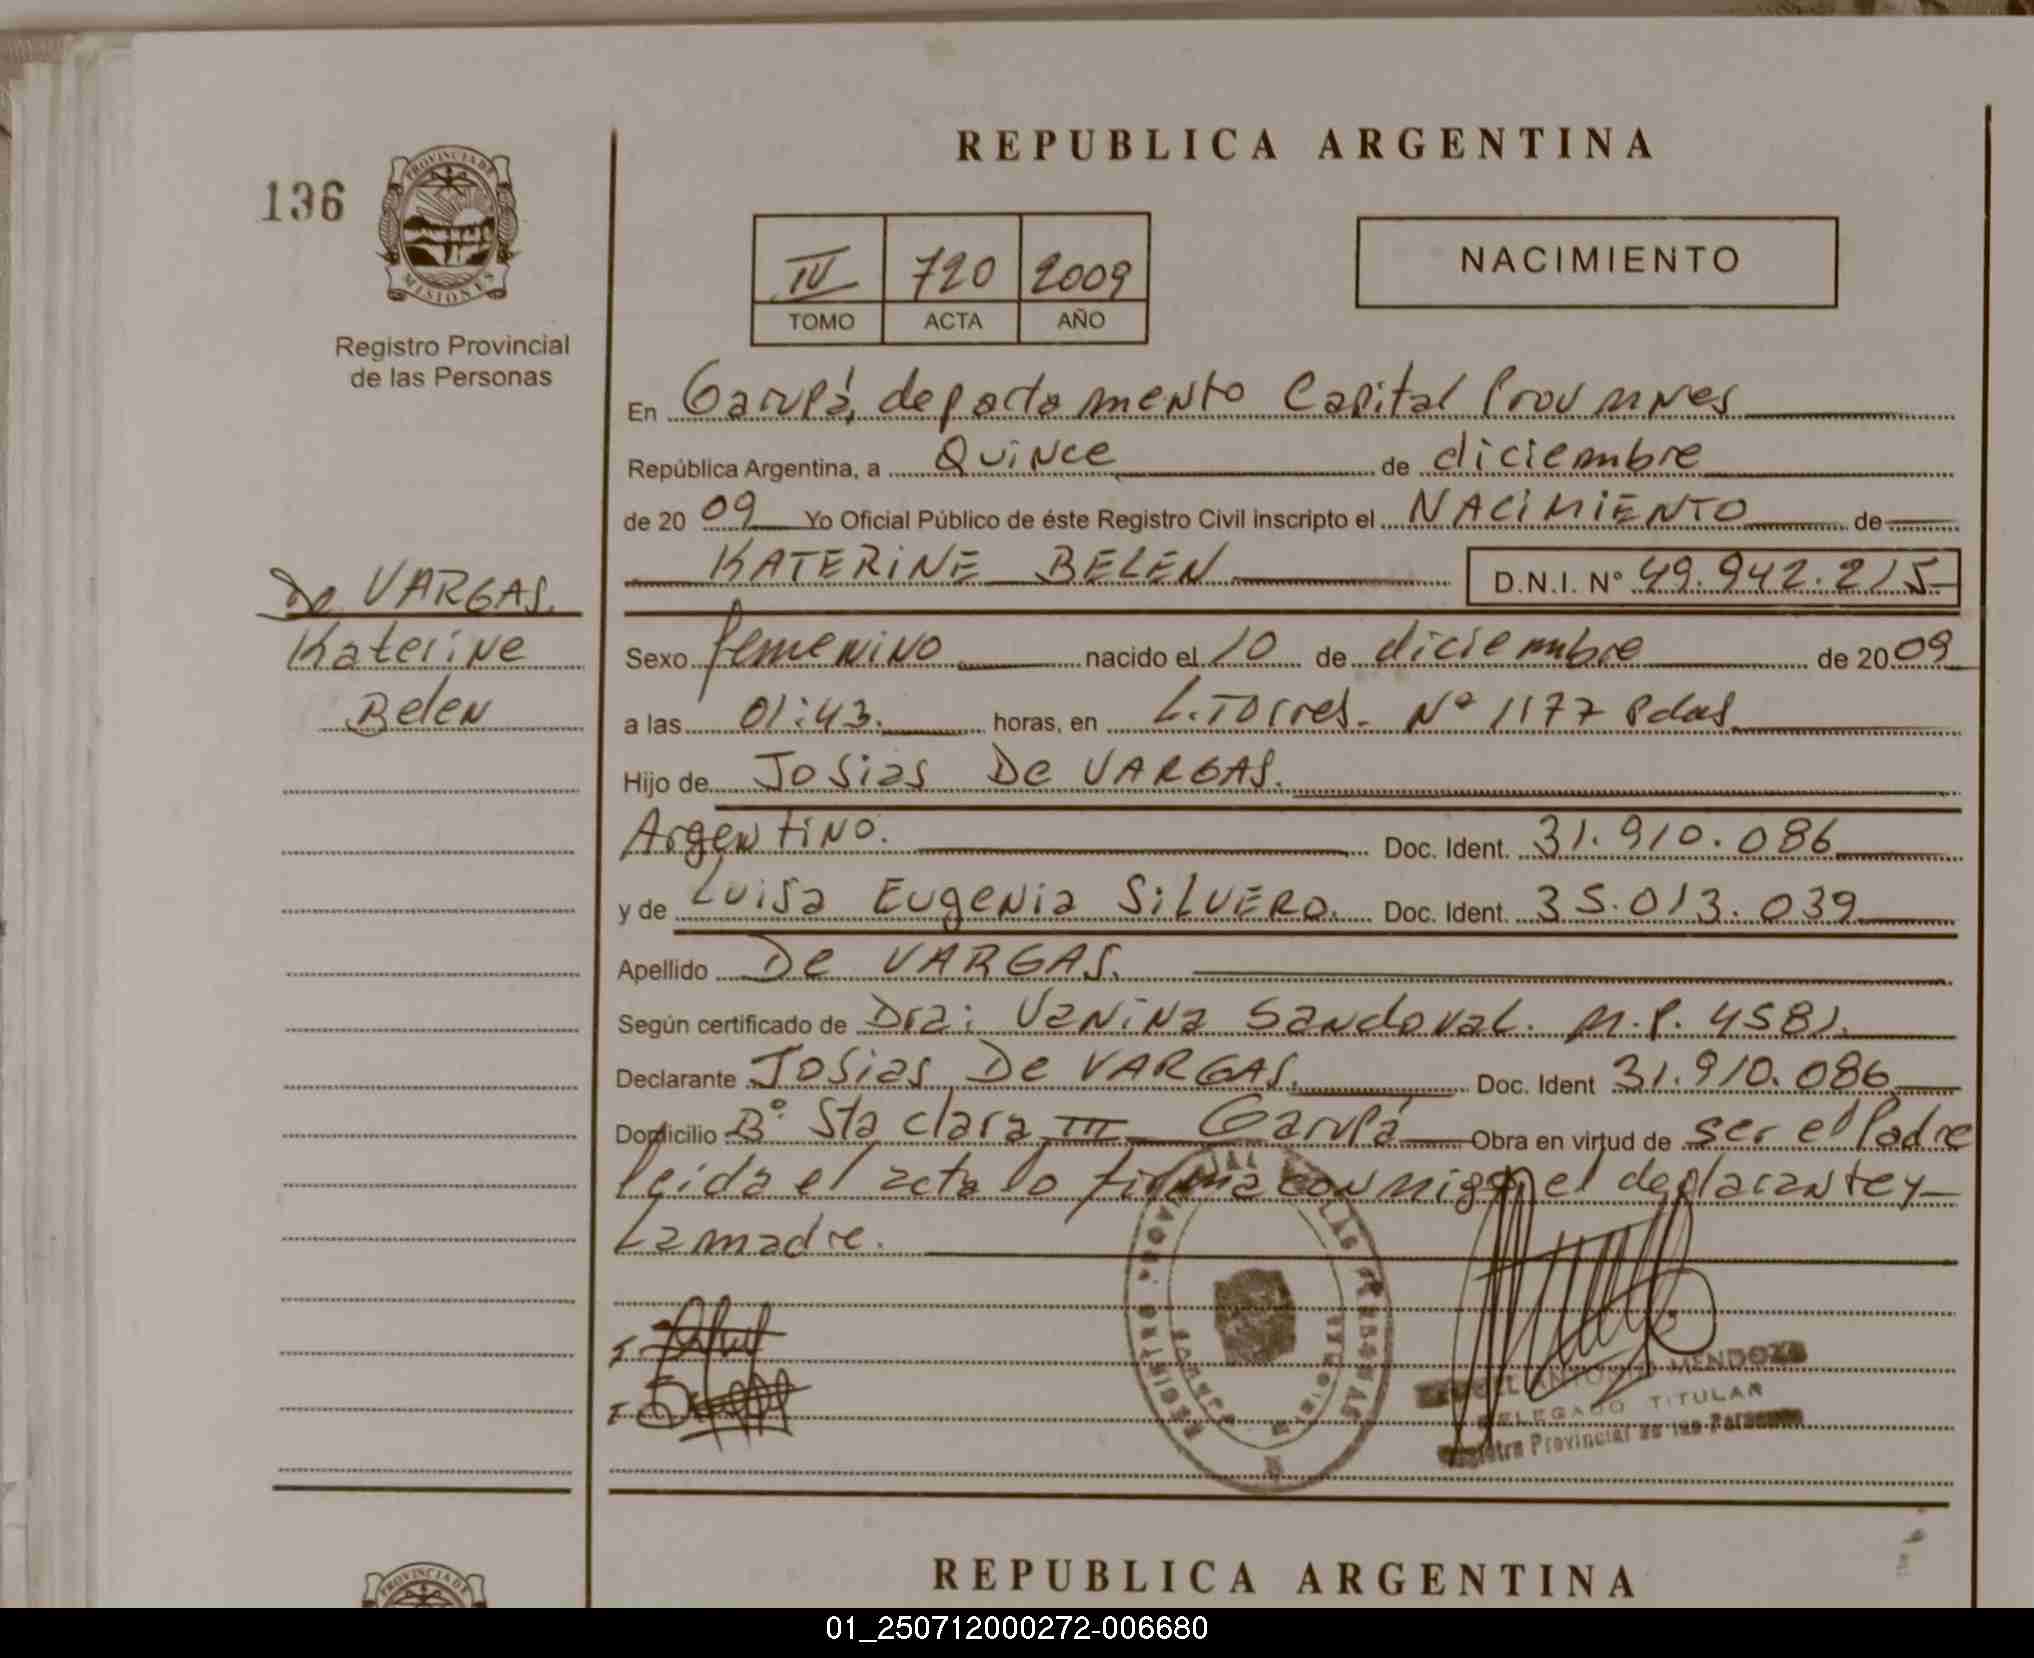 REPUBLICA ARGENTINA
136
PROVINCIA DE
MISIONES
Registro Provincial
de las Personas
IV 720 2009
TOMO ACTA AÑO
NACIMIENTO
En Garupá, departamento Capital Prov mnes
República Argentina, a Quince de diciembre
de 2009 Yo Oficial Público de éste Registro Civil inscripto el NACIMIENTO de
KATERINE BELEN D.N.I. N° 49.942.215
De VARGAS.
Katerine
Belen
Sexo femenino nacido el 10 de diciembre de 2009
a las 01:43. horas, en L. Torres. Nº 1177 Pdas
Hijo de Josias De VARGAS.
Argentino. Doc. Ident. 31.910.086
y de Luisa Eugenia SILVERO. Doc. Ident. 35.013.039
Apellido De VARGAS.
Según certificado de Dra: Vanina Sandoval. M.P. 4581.
Declarante Josias De VARGAS. Doc. Ident 31.910.086
Domicilio B° Sta clara III Garupá Obra en virtud de ser el Padre
leida el acta lo firma conmigo el declarante y
La madre.
ANTONIO MENDOZA
DELEGADO TITULAR
Registro Provincial de las Personas
REPUBLICA ARGENTINA
PROVINCIA DE
01_250712000272-006680